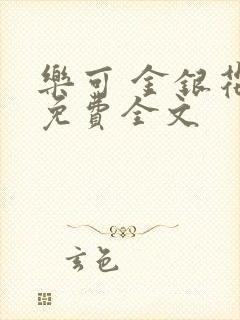 樂可 金銀花
免費全文
玄色